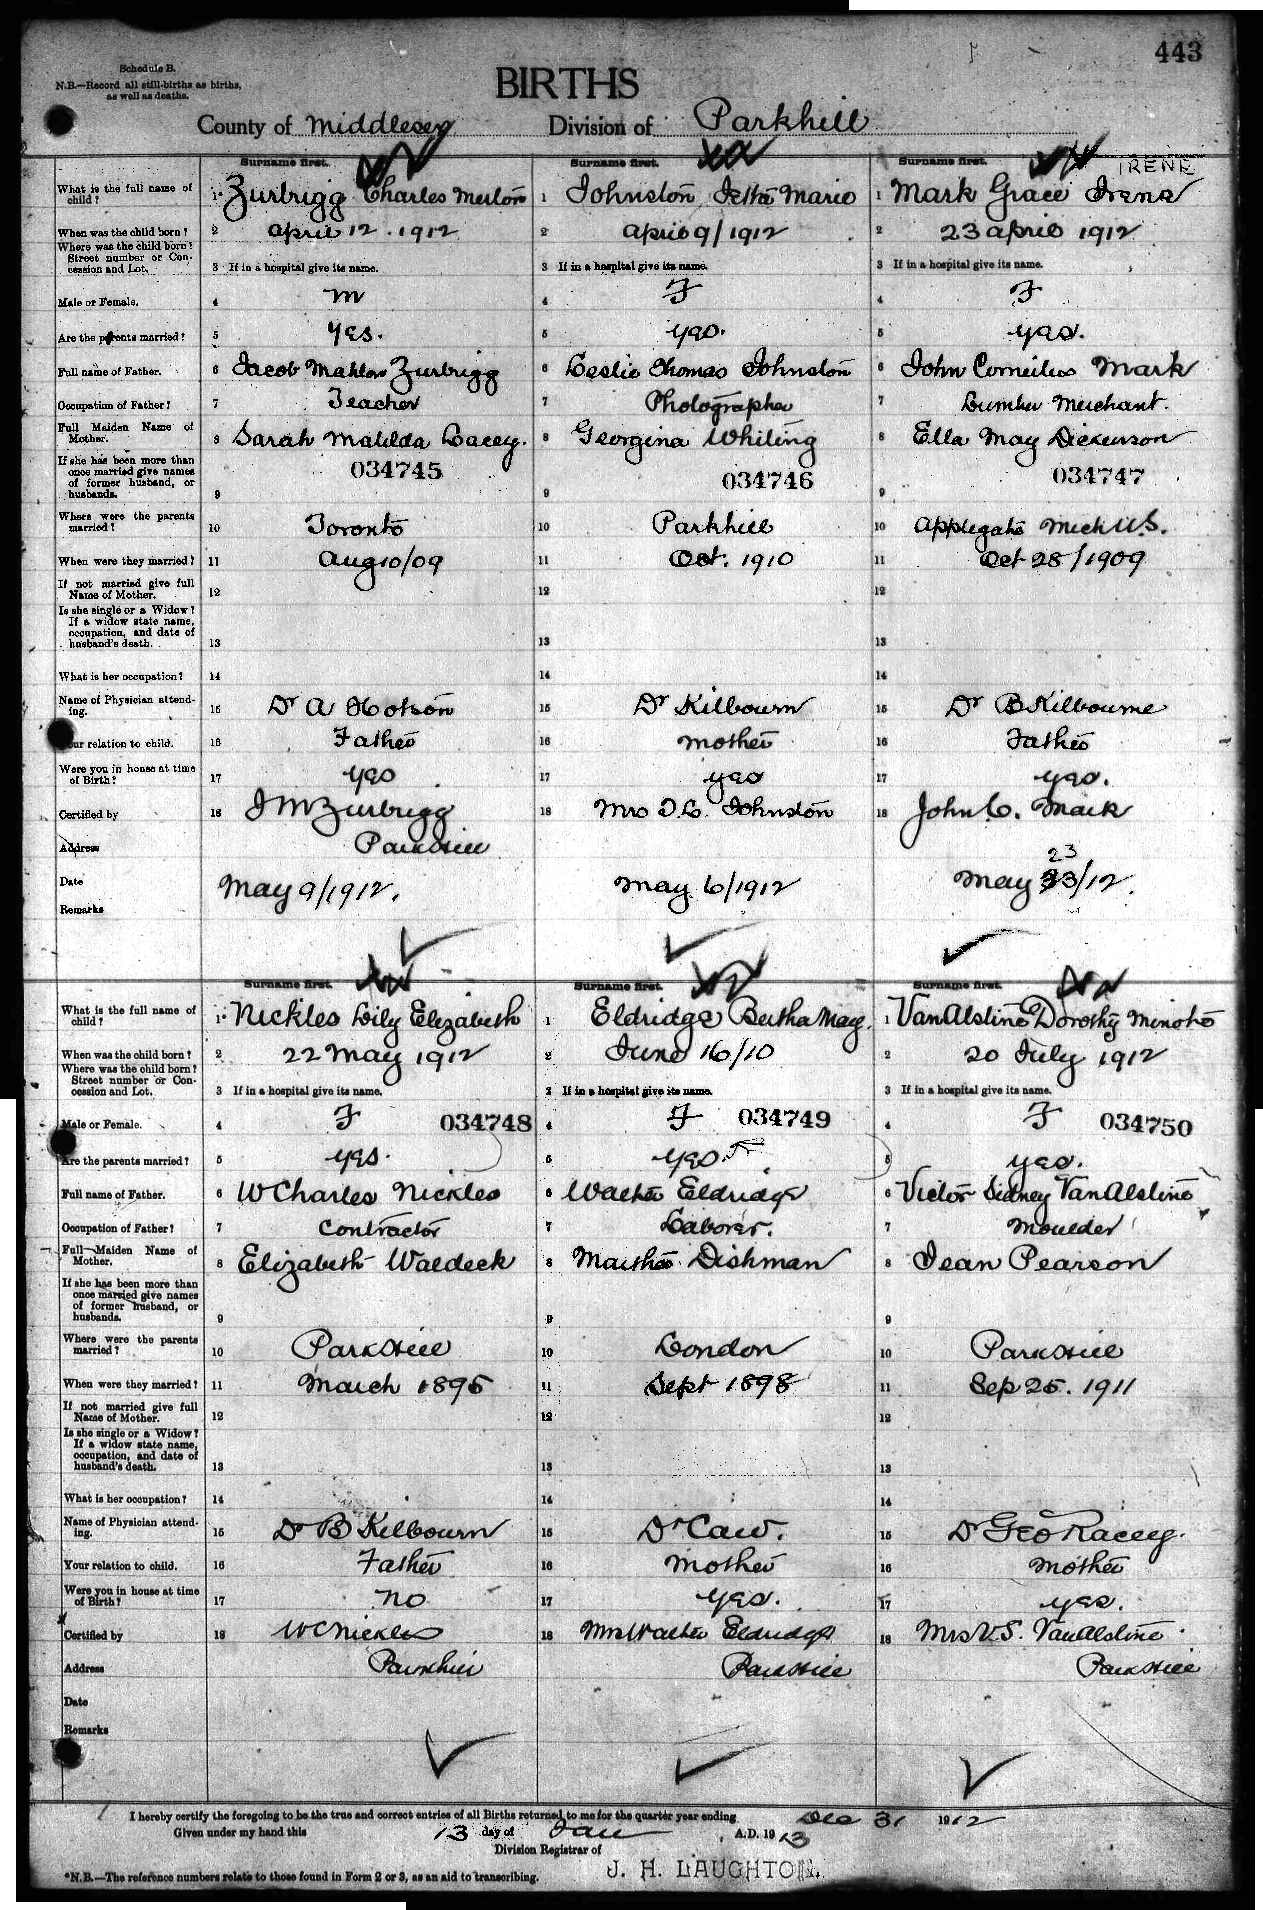 443
Schedule B.
N.B.—Record all still-births as births,
as well as deaths.
BIRTHS
County of Middlesex Division of Parkhill
Surname first. Surname first. Surname first.
IRENE
What is the full name of child? 1 Zurbrigg Charles Merton 1 Johnston, Jetta Marie 1 Mark Grace Irene
When was the child born? 2 April 12. 1912 2 April 9/1912 2 23 April 1912
Where was the child born? Street number or Concession and Lot. 3 If in a hospital give its name. 3 If in a hospital give its name. 3 If in a hospital give its name.
Male or Female. 4 M 4 F 4 F
Are the parents married? 5 yes. 5 yes. 5 yes.
Full name of Father. 6 Jacob Mahlon Zurbrigg 6 Leslie Thomas Johnston 6 John Cornelius Mark
Occupation of Father? 7 Teacher 7 Photographer 7 Lumber Merchant.
Full Maiden Name of Mother. 8 Sarah Matilda Lacey. 8 Georgina Whiting 8 Ella May Dickenson
034745 034746 034747
If she has been more than once married give names of former husband, or husbands. 9 9 9
Where were the parents married? 10 Toronto 10 Parkhill 10 Applegate Mich U.S.
When were they married? 11 Aug 10/09 11 Oct. 1910 11 Oct 28/1909
If not married give full Name of Mother. 12 12 12
Is she single or a Widow? If a widow state name, occupation, and date of husband's death. 13 13 13
What is her occupation? 14 14 14
Name of Physician attending. 15 Dr A Hotson 15 Dr Kilbourn 15 Dr B Kilbourne
Your relation to child. 16 Father 16 Mother 16 Father
Were you in house at time of Birth? 17 yes 17 yes 17 yes.
Certified by 18 J M Zurbrigg 18 Mrs T. L. Johnston 18 John C. Mark
Address Parkhill
23
Date May 9/1912. May 6/1912 May 23/12.
Remarks
Surname first. Surname first. Surname first.
What is the full name of child? 1 Nickles Lily Elizabeth 1 Eldridge Bertha May. 1 VanAlstine Dorothy Minota
When was the child born? 2 22 May 1912 2 June 16/10 2 20 July 1912
Where was the child born? Street number or Concession and Lot. 3 If in a hospital give its name. 3 If in a hospital give its name. 3 If in a hospital give its name.
Male or Female. 4 F 034748 4 F 034749 4 F 034750
Are the parents married? 5 yes. 5 yes. 5 yes.
Full name of Father. 6 W Charles Nickles 6 Walter Eldridge 6 Victor Sidney VanAlstine
Occupation of Father? 7 Contractor 7 Laborer. 7 Moulder
Full Maiden Name of Mother. 8 Elizabeth Waldeck 8 Martha Dishman 8 Jean Pearson
If she has been more than once married give names of former husband, or husbands. 9 9 9
Where were the parents married? 10 Parkhill 10 London 10 Parkhill
When were they married? 11 March 1895 11 Sept 1898 11 Sep 25. 1911
If not married give full Name of Mother. 12 12 12
Is she single or a Widow? If a widow state name, occupation, and date of husband's death. 13 13 13
What is her occupation? 14 14 14
Name of Physician attending. 15 Dr B Kilbourn 15 Dr Caw. 15 Dr Geo Racey.
Your relation to child. 16 Father 16 Mother 16 Mother
Were you in house at time of Birth? 17 no 17 yes. 17 yes.
Certified by 18 W C Nickles 18 Mrs Walter Eldridge 18 Mrs V.S. VanAlstine
Address Parkhill Parkhill Parkhill
Date
Remarks
I hereby certify the foregoing to be the true and correct entries of all Births returned to me for the quarter year ending Dec 31 1912
Given under my hand this 13 day of Jan, A.D. 1913
Division Registrar of
J. H. LAUGHTON.
*N.B.—The reference numbers relate to those found in Form 2 or 3, as an aid to transcribing.